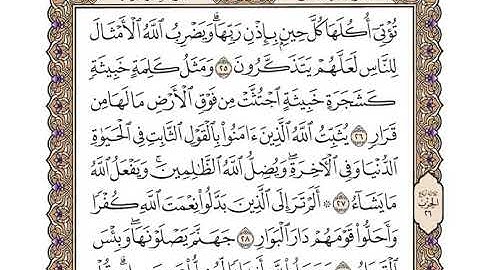 تُؤْتِىٓ أُكُلَهَا كُلَّ حِينٍۭ بِإِذْنِ رَبِّهَا ۗ وَيَضْرِبُ ٱللَّهُ ٱلْأَمْثَالَ
لِلنَّاسِ لَعَلَّهُمْ يَتَذَكَّرُونَ ٢٥ وَمَثَلُ كَلِمَةٍ خَبِيثَةٍ
كَشَجَرَةٍ خَبِيثَةٍ ٱجْتُثَّتْ مِن فَوْقِ ٱلْأَرْضِ مَا لَهَا مِن
قَرَارٍ ٢٦ يُثَبِّتُ ٱللَّهُ ٱلَّذِينَ ءَامَنُوا۟ بِٱلْقَوْلِ ٱلثَّابِتِ فِى ٱلْحَيَوٰةِ
ٱلدُّنْيَا وَفِى ٱلْءَاخِرَةِ ۖ وَيُضِلُّ ٱللَّهُ ٱلظَّـٰلِمِينَ ۚ وَيَفْعَلُ ٱللَّهُ
مَا يَشَآءُ ٢٧ ۞ أَلَمْ تَرَ إِلَى ٱلَّذِينَ بَدَّلُوا۟ نِعْمَتَ ٱللَّهِ كُفْرًا
وَأَحَلُّوا۟ قَوْمَهُمْ دَارَ ٱلْبَوَارِ ٢٨ جَهَنَّمَ يَصْلَوْنَهَا ۖ وَبِئْسَ
الحزب
٢٦